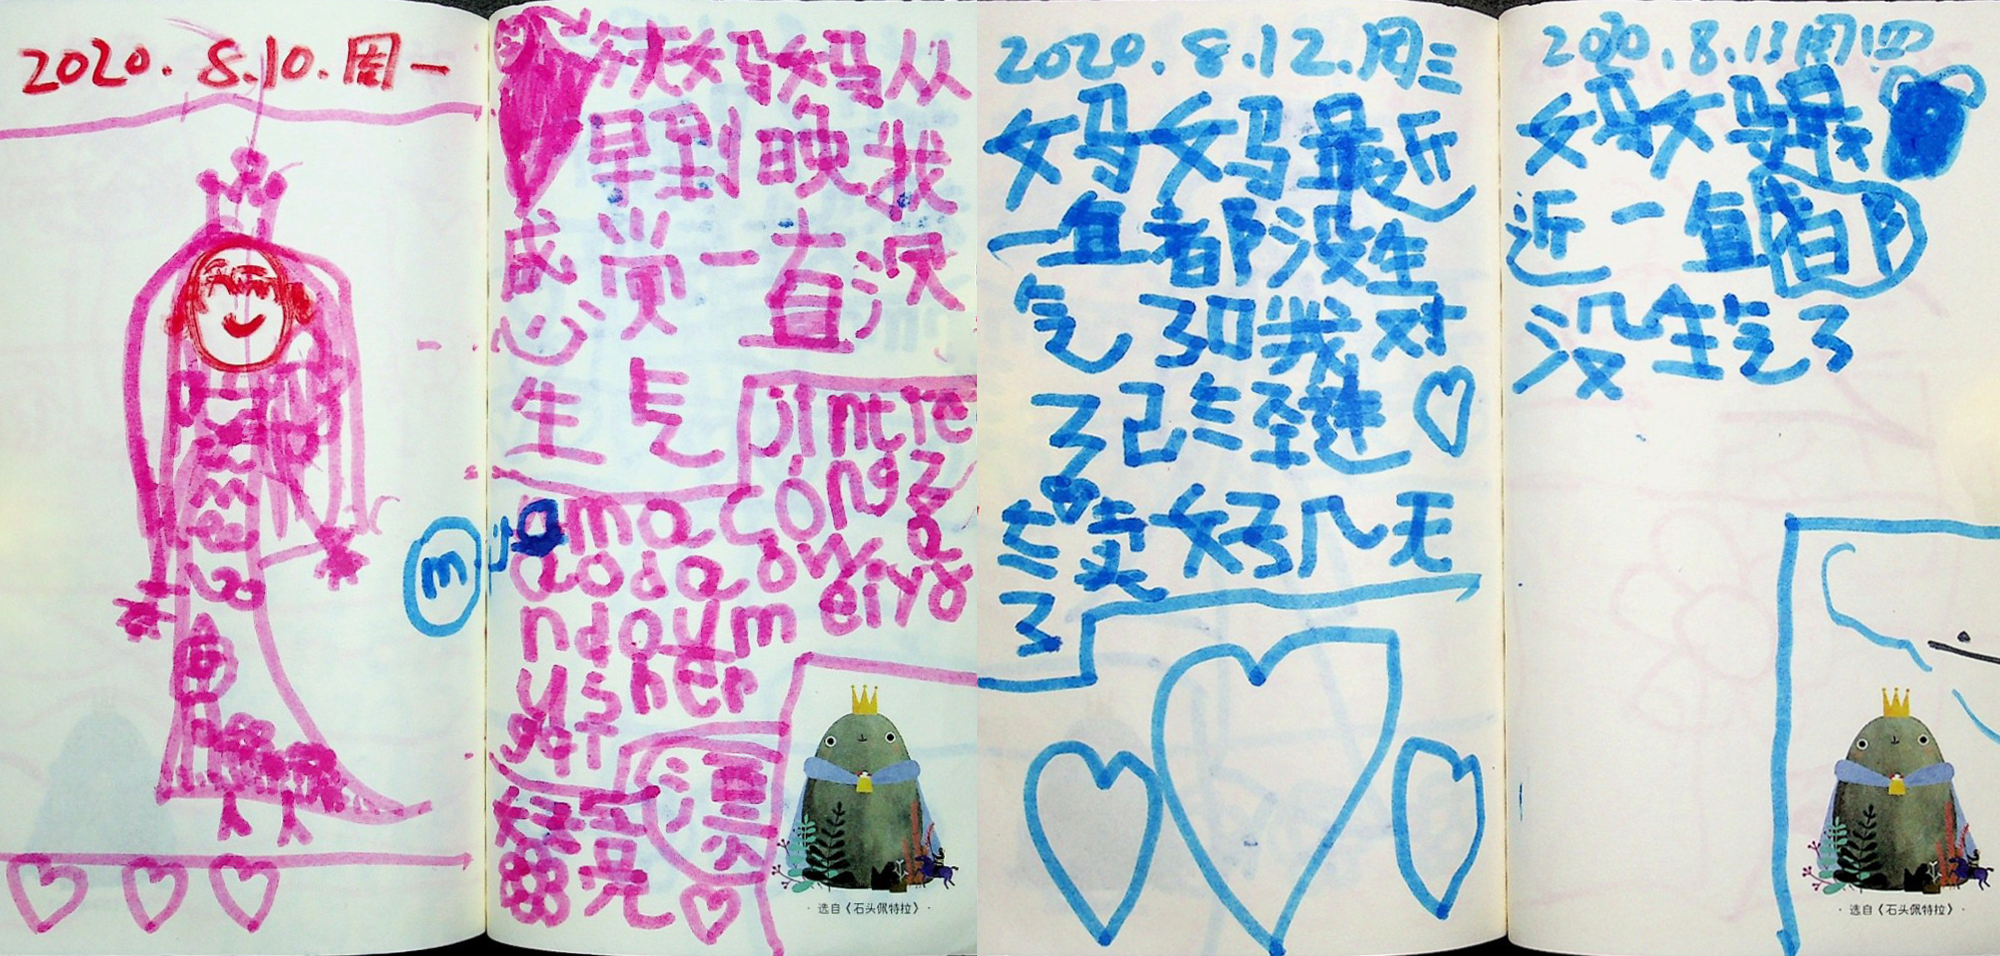 2020.8.10.周一
m
今天妈妈从
早到晚我
感觉一直没
生气
jintie
ama cóngz
aodao
ndoum eiyo
usher
好漂
亮
· 选自《石头佩特拉》·
2020.8.12.周三
妈妈最近
一直都没生
气了 我对
了已经连
好几天
了
2020.8.13周四
妈妈最
近一直都
没生气了
· 选自《石头佩特拉》·